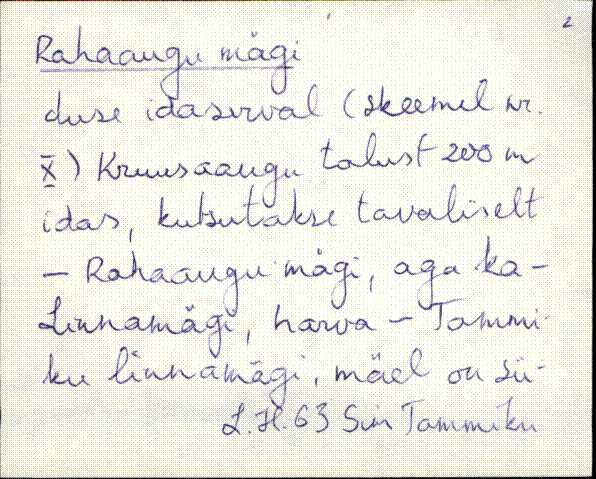 2
Rahaaugu mägi
duse idaserval (skeemil nr.
X) Kruusaaugu talust 200 m
idas, kutsutakse tavaliselt
– Rahaaugu mägi, aga ka –
Linnamägi, harva – Tammi-
ku linnamägi, mäel on sü-
L.H. 63 Sim Tammiku